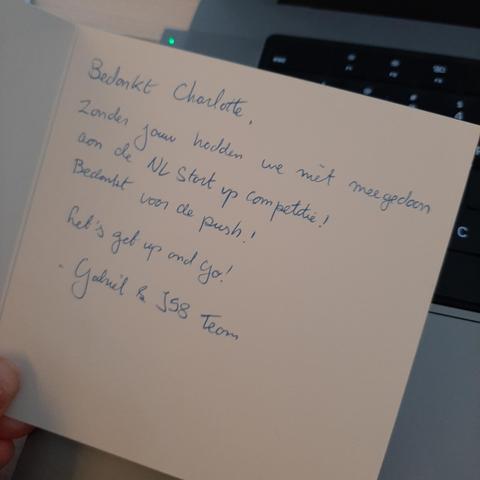 Bedankt Charlotte,
Zonder jouw hadden we niet meegedaan
aan de NL Start up competitie!
Bedankt voor de push!
Let's get up and go!
- Gabriël & JS8 Team
C